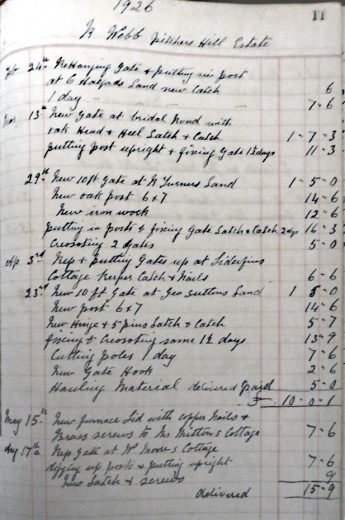 1926
11
N Webb Pitchers Hill Estate
Feb 24th Rehanging Gate & putting in post
at C Halfords Land new Catch 6
1 day 7-6
Mar 13th New Gate at bridal Road with
oak Head & Heel Latch & Catch 1-7-3
putting post upright & fixing Gate 1½ days 11-3
29th New 10ft Gate at W Turners Land 1-5-0
New oak post 6x7 14-6
New iron work 12-6
putting in posts & fixing Gate Latch & Catch 2 days 16-3
Creosoting 2 gates 5-0
Apl 3rd Rep & putting Gates up at
Cottage Catch & Nails 6-6
23rd New 10 ft Gate at Geo Suttons Land 1 5-0
New post 6x7 14-6
New Hinge & 5 pins Latch & Catch 5-7
fixing & Creosoting same 1½ days 13-9
Cutting poles 1 day 7-6
New Gate Hook 2-6
Hauling Material delivered paid 5-0
£ 10-0-1
May 15th New furnace Lid with copper Nails &
Brass screws to Mr Mittons Cottage 7-6
Aug 17th Rep Gate at Wm Moore's Cottage
digging up posts & putting upright 7-6
New Latch & screws 9
delivered 15-9